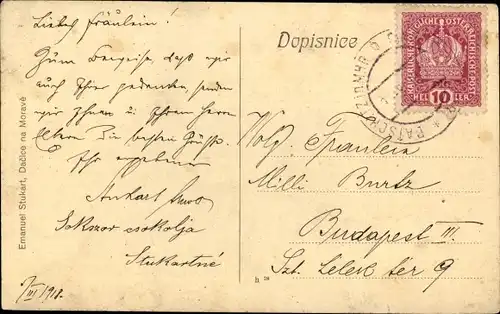 Liebes Fräulein!
Zum Beweise, daß wir
auch Ihrer gedenken, senden
wir Ihnen u. Ihren Herrn
Eltern die besten Grüße.
Ihr ergebener
Stukart
Sokszor csokolja
Stukartné
/III 1918.
Emanuel Stukart, Dačice na Moravě
Dopisnice
KAISERLICHE KÖNIGLICHE ÖSTERREICHISCHE POST
10
HELLER
DATSCHITZ
Wolg. Fräulein
Milli Burtz
Budapest III.
Szt. Lelek tér 9